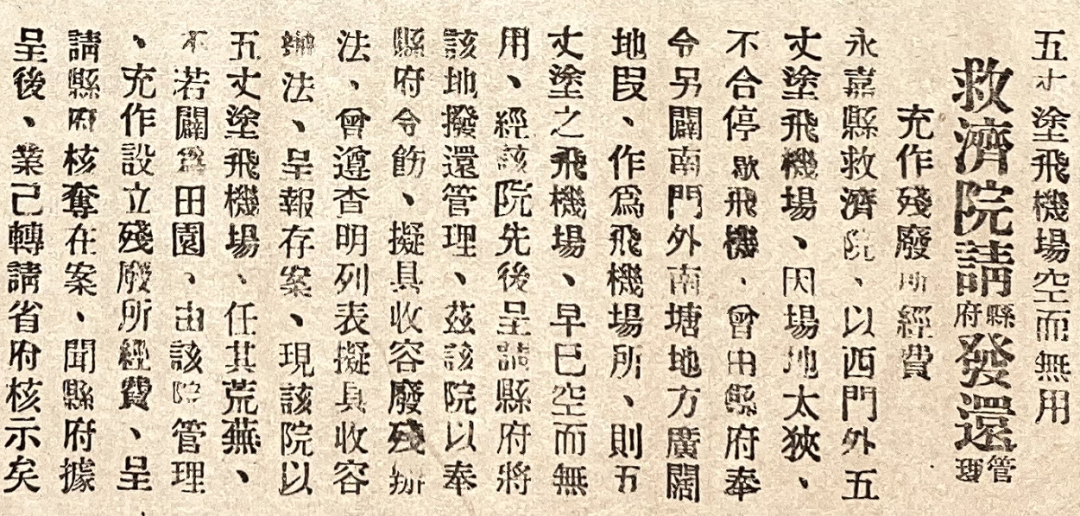 五丈塗飛機場空而無用
救濟院請縣府發還管理
充作殘廢所經費
永嘉縣救濟院、以西門外五
丈塗飛機場、因場地太狹、
不合停歇飛機、曾由縣府奉
令另闢南門外南塘地方廣闊
地段、作爲飛機場所、則五
丈塗之飛機場、早已空而無
用、經該院先後呈請縣府將
該地撥還管理、茲該院以奉
縣府令飭、擬具收容廢殘辦
法、曾遵查明列表擬具收容
辦法、呈報存案、現該院以
五丈塗飛機場、任其荒蕪、
不若闢爲田園、由該院管理
、充作設立殘廢所經費、呈
請縣府核奪在案、聞縣府據
呈後、業己轉請省府核示矣